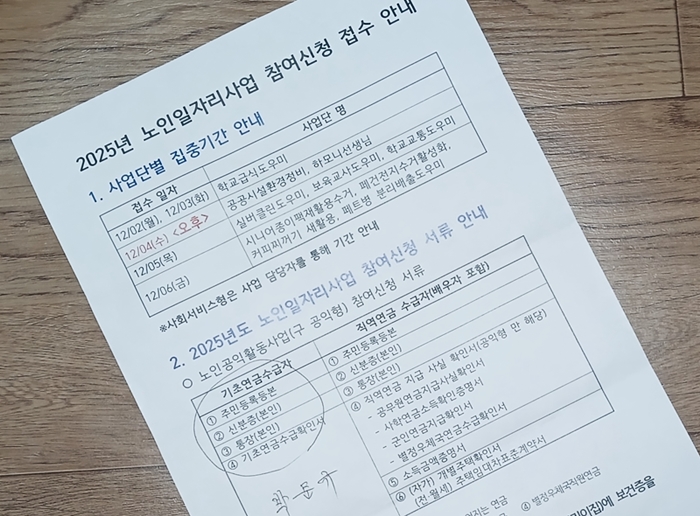 2025년 노인일자리사업 참여신청 접수 안내
1. 사업단별 집중기간 안내
접수 일자
사업단 명
12/02(월), 12/03(화)
학교급식도우미
12/04(수) <오후>
공공시설환경정비, 하모니선생님
12/05(목)
실버클린도우미, 보육교사도우미, 학교교통도우미
12/06(금)
시니어종이팩재활용수거, 폐건전지수거활성화,
커피찌꺼기 새활용, 페트병 분리배출도우미
※사회서비스형은 사업 담당자를 통해 기간 안내
2. 2025년도 노인일자리사업 참여신청 서류 안내
○ 노인공익활동사업(구 공익형) 참여신청 서류
기초연금수급자
직역연금 수급자(배우자 포함)
① 주민등록등본
② 신분증(본인)
③ 통장(본인)
④ 기초연금수급확인서
① 주민등록등본
② 신분증(본인)
③ 통장(본인)
④ 직역연금 지급 사실 확인서(공익형 만 해당)
- 공무원연금지급사실확인서
- 사학연금소득확인증명서
- 군인연금지급확인서
- 별정우체국연금수급확인서
⑤ 소득금액증명서
⑥ (자가) 개별주택확인서
(전·월세) 주택임대차표준계약서
지는 연금
④ 별정우체국직원연금
집)에 보건증을